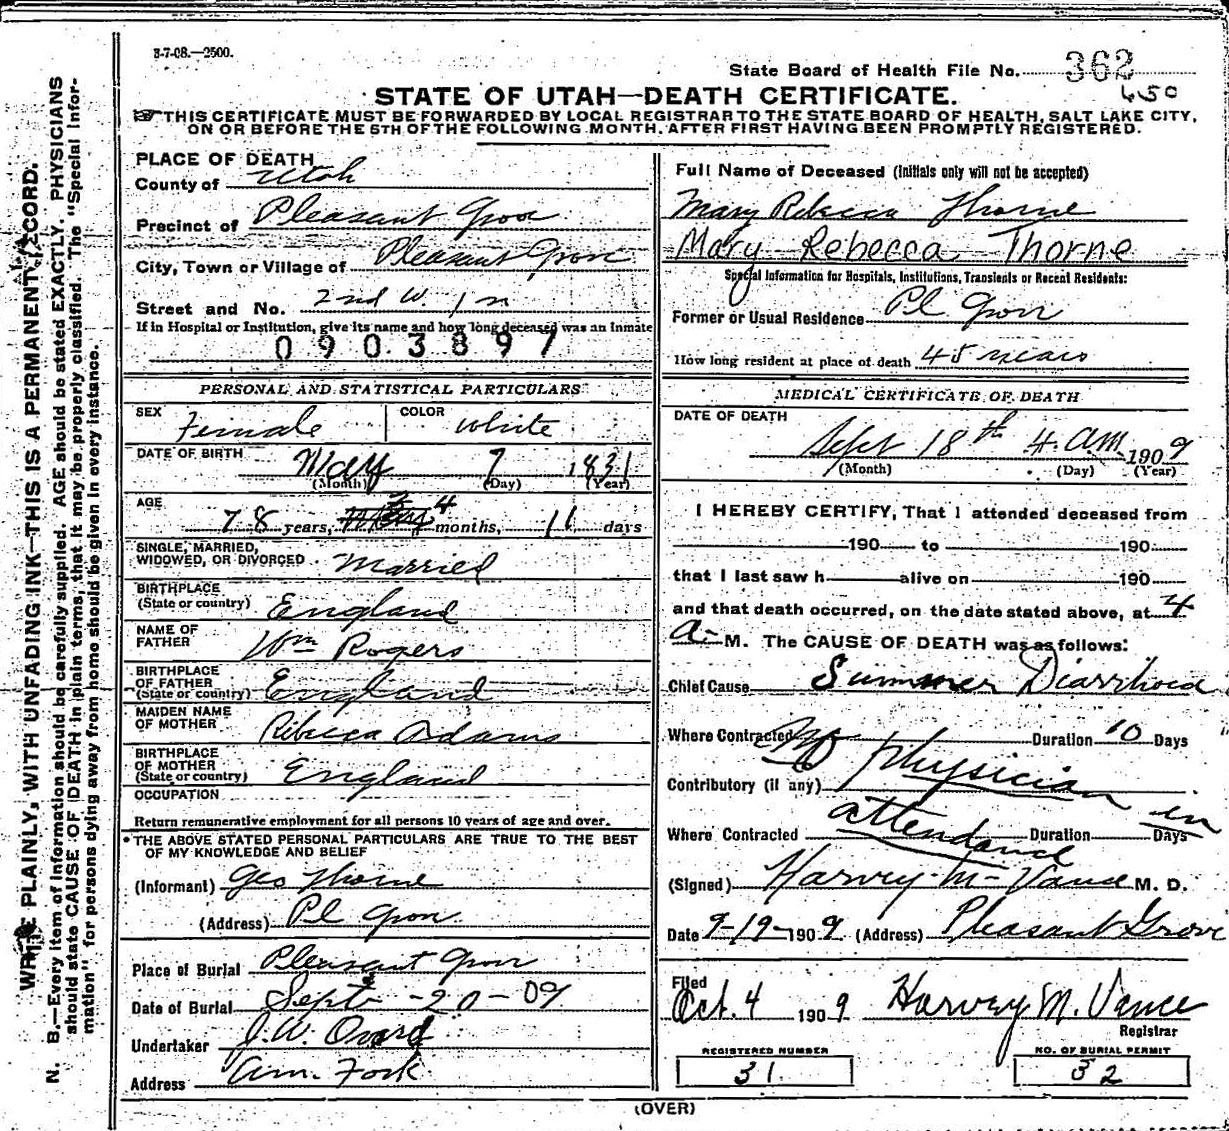 3-7-08.—2500.
State Board of Health File No. 362
650
STATE OF UTAH—DEATH CERTIFICATE.
THIS CERTIFICATE MUST BE FORWARDED BY LOCAL REGISTRAR TO THE STATE BOARD OF HEALTH, SALT LAKE CITY,
ON OR BEFORE THE 5TH OF THE FOLLOWING MONTH, AFTER FIRST HAVING BEEN PROMPTLY REGISTERED.
WRITE PLAINLY, WITH UNFADING INK—THIS IS A PERMANENT RECORD.
N. B.—Every item of information should be carefully supplied. AGE should be stated EXACTLY. PHYSICIANS
should state CAUSE OF DEATH in plain terms, that it may be properly classified. The "Special Infor-
mation" for persons dying away from home should be given in every instance.
PLACE OF DEATH
County of Utah
Precinct of Pleasant Grove
City, Town or Village of Pleasant Grove
Street and No. 2nd W. 1 n
If in Hospital or Institution, give its name and how long deceased was an inmate
0903897
PERSONAL AND STATISTICAL PARTICULARS
SEX Female COLOR White
DATE OF BIRTH May 7 1831
(Month) (Day) (Year)
AGE
78 years, 4 months, 11 days
SINGLE, MARRIED,
WIDOWED, OR DIVORCED Married
BIRTHPLACE
(State or country) England
NAME OF
FATHER Wm Rogers
BIRTHPLACE
OF FATHER
(State or country) England
MAIDEN NAME
OF MOTHER Rebecca Adams
BIRTHPLACE
OF MOTHER
(State or country) England
OCCUPATION
Return remunerative employment for all persons 10 years of age and over.
THE ABOVE STATED PERSONAL PARTICULARS ARE TRUE TO THE BEST
OF MY KNOWLEDGE AND BELIEF
(Informant) Geo Thorne
(Address) Pl Grove
Place of Burial Pleasant Grove
Date of Burial Sept - 20 - 09
Undertaker J. W. Ovard
Address Am. Fork
Full Name of Deceased (Initials only will not be accepted)
Mary Rebecca Thorne
Mary Rebecca Thorne
Special Information for Hospitals, Institutions, Transients or Recent Residents:
Former or Usual Residence Pl Grove
How long resident at place of death 45 years
MEDICAL CERTIFICATE OF DEATH
DATE OF DEATH
Sept 18th 4. am 1909
(Month) (Day) (Year)
I HEREBY CERTIFY, That I attended deceased from
190 to 190
that I last saw h alive on 190
and that death occurred, on the date stated above, at 4
a- M. The CAUSE OF DEATH was as follows:
Chief Cause Summer Diarrhoea
Where Contracted Duration 10 Days
No physician in
Contributory (if any)
attendance
Where Contracted Duration Days
(Signed) Harvey M Vance M. D.
Date 9-19-1909 (Address) Pleasant Grove
Filed
Oct. 4 1909 Harvey M. Vance
Registrar
REGISTERED NUMBER
31
NO. OF BURIAL PERMIT
32
(OVER)